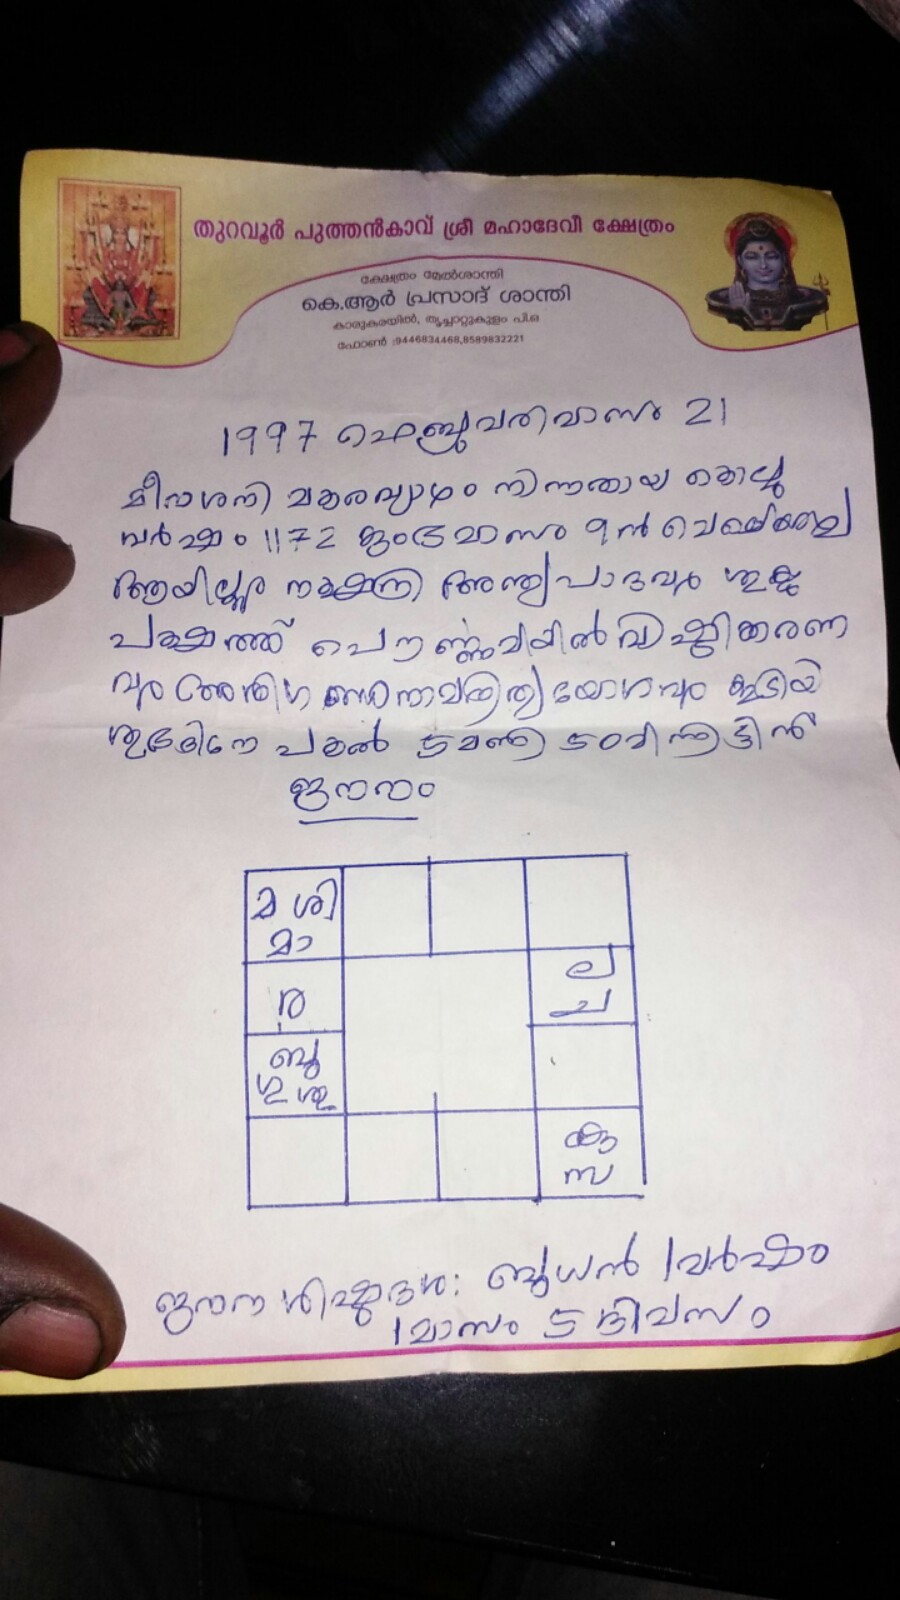 തുറവൂർ പുത്തൻകാവ് ശ്രീ മഹാദേവീ ക്ഷേത്രം
ക്ഷേത്രം മേൽശാന്തി
കെ.ആർ പ്രസാദ് ശാന്തി
കാരുകരയിൽ, തൃച്ചാറ്റുകുളം പി.ഒ
ഫോൺ :9446834468,8589832221
1997 ഫെബ്രുവരിമാസം 21
മീനശനി മകരവ്യാഴം നിന്നതായ കൊല്ല
വർഷം 1172 കുംഭമാസം 9ൻ വെള്ളിയാഴ്ച
ആയില്ല്യം നക്ഷത്ര അന്ത്യപാദവും ശുക്ല
പക്ഷത്ത് പൌർണ്ണമിയിൽ വിഷ്ടിക്കരണ
വും അതിഗണ്ഡനാമനിത്യയോഗവും കൂടിയ
ശുഭദിനേ പകൽ 5 മണി 50 മിനിട്ടിന്
ജനനം
മ ശി
മാ
ല
ച
ര
ബു
ഗു ശു
കു
സ
ജനന ശിഷ്ടദശ: ബുധൻ 1 വർഷം
1 മാസം 5 ദിവസം